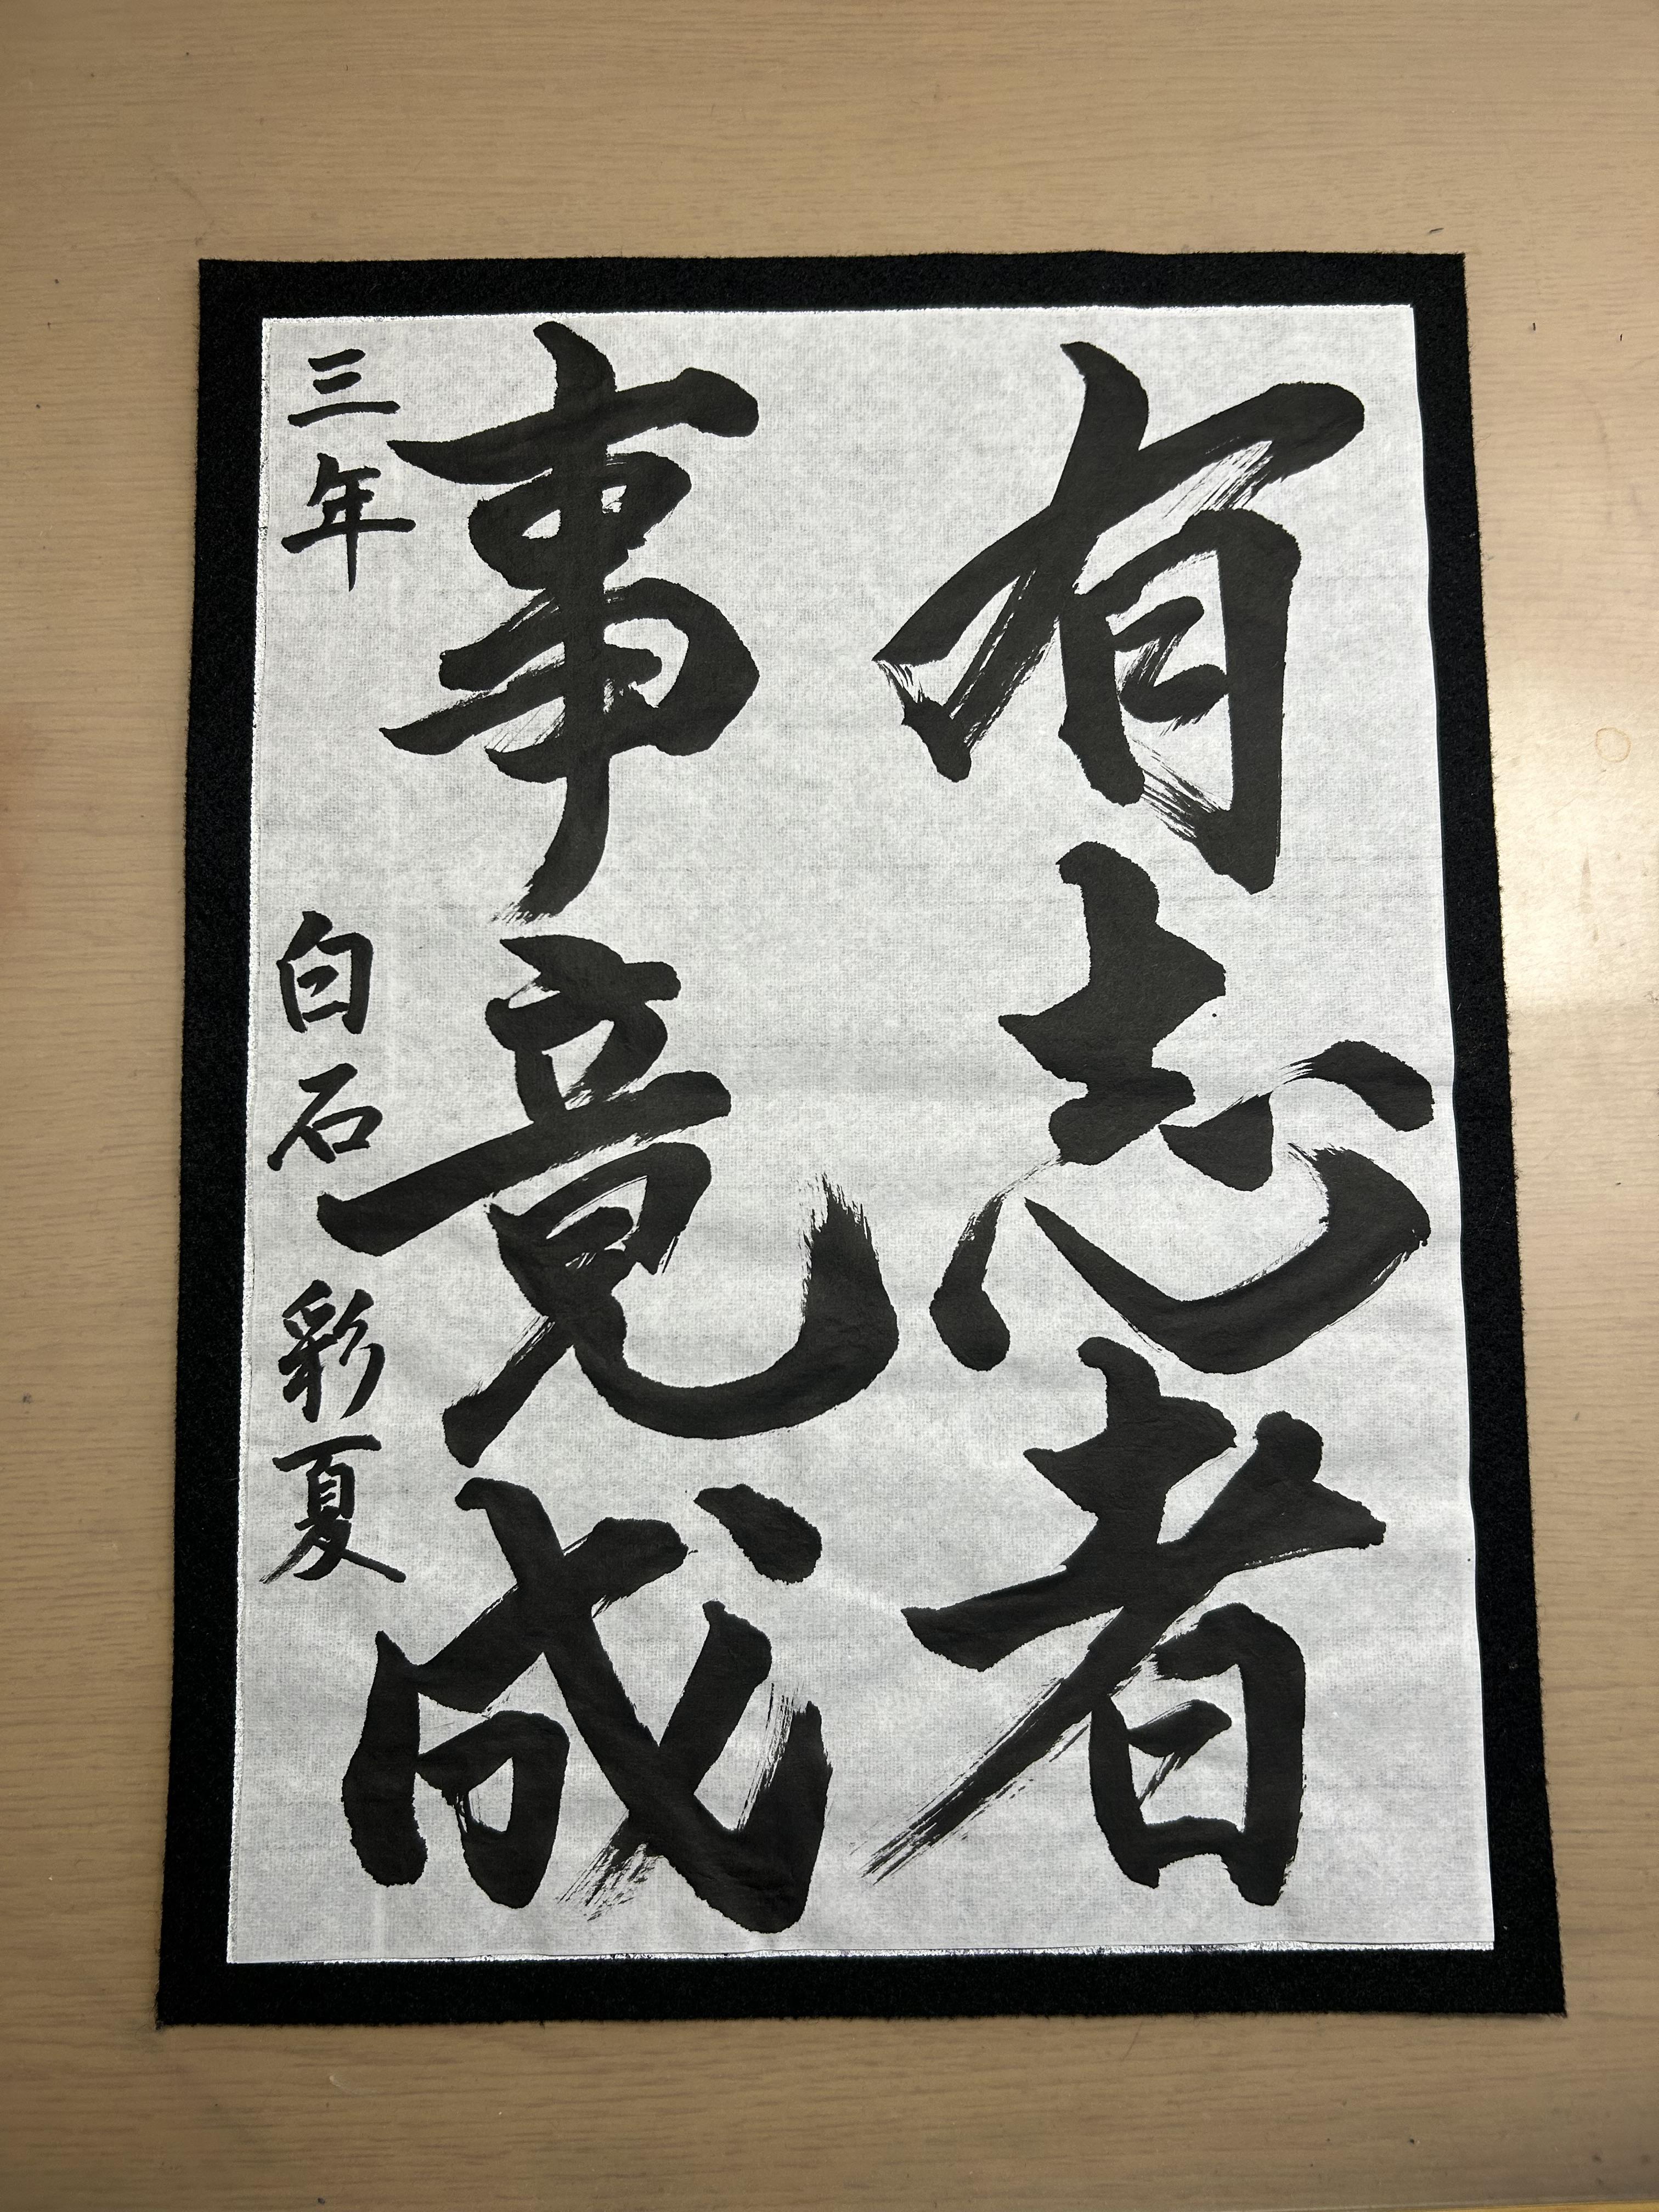 有志者
事竟成
三年 白石彩夏